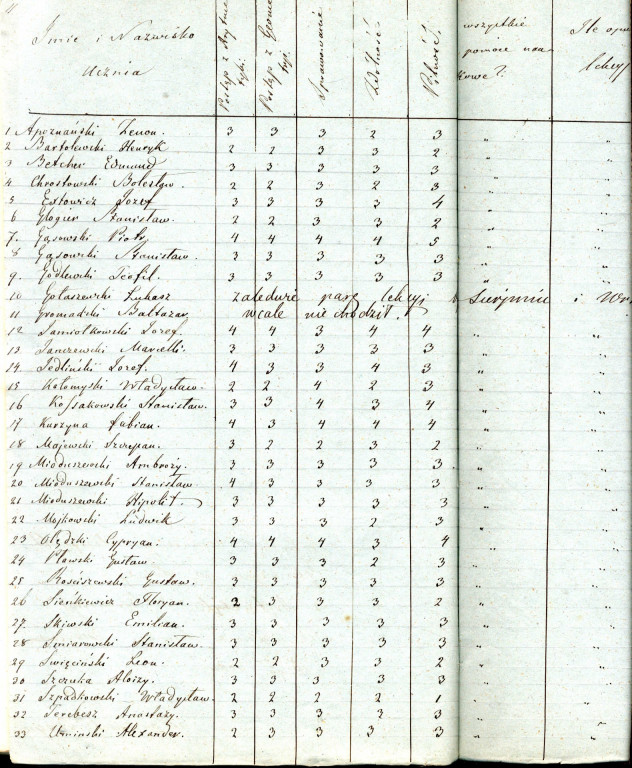 Imie i Nazwisko Ucznia | Postęp z Arytmetyki. | Postęp z Geometryi. | Sprawowanie | Zdolność. | Pilność. | wszystkie pomoce naukowe?
1 Apoznański Zenon. 3 3 3 2 3 " "
2 Bartolewski Henryk 2 2 3 3 2 " "
3 Betcher Edmund 3 3 3 3 3 " "
4 Chrostowski Bolesław. 2 2 3 2 3 " "
5 Extowicz Jozef 3 3 3 3 4 " "
6 Glogier Stanisław. 2 2 3 3 2 " "
7. Gąsowski Piotr. 4 4 4 4 5 " "
8 Gąsowski Stanisław. 3 3 3 3 3 " "
9 Godlewski Teofil. 3 3 3 3 3 " "
10 Gołaszewski Łukasz zaledwie parę lekcyj w Sierpniu i
11 Gromadzki Baltazar wcale nie chodził.
12 Jamiołkowski Jozef. 4 4 3 4 4 " "
13 Janczewski Marcelli. 3 3 3 3 3 " "
14 Jedliński Jozef. 4 3 3 4 3 " "
15 Kołomyski Władysław. 2 2 4 2 3 " "
16 Kossakowski Stanisław. 3 3 4 3 4 " "
17 Kurzyna Fabian. 4 3 4 4 4 " "
18 Majewski Szczepan. 3 2 2 3 2 " "
19 Mioduszewski Ambroży. 3 3 3 3 3 " "
20 Mioduszewski Stanisław 4 3 3 3 3 " "
21 Mioduszewski Hipolit. 3 3 3 3 3 " "
22 Mojkowski Ludwik 3 3 3 2 3 " "
23 Olędzki Cypryan. 4 4 4 3 4 " "
24 Pławski Gustaw. 3 3 3 2 3 " "
25 Rościszewski Gustaw. 3 3 3 3 3 " "
26 Sieńkiewicz Floryan. 2 3 3 3 2 " "
27. Skiwski Emilian. 3 3 3 3 3 " "
28 Śniarowski Stanisław. 3 3 3 3 3 " "
29 Święciński Leon. 2 2 3 3 2 " "
30 Szczuka Aloizy. 3 3 3 3 3 " "
31 Szpadkowski Władysław. 2 2 2 2 1 " "
32 Terebesz Anastazy. 3 3 3 3 3 " "
33 Umiński Alexander. 2 3 3 3 3 " "